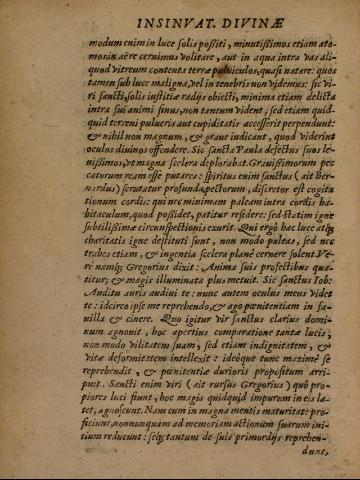 INSINVAT. DIVINÆ
modum enim in luce solis positi, minutissimos etiam ato-
mos in aëre cernimus volitare, aut in aqua intra vas ali-
quod vitreum contenta terræ pulviculos, quasi natare: quos
tamen sub luce maligna, vel in tenebris non videmus: sic vi-
ri sancti, solis iustitiæ radijs obiecti, minima etiam delicta
intra sui animi sinus, non tantum vident, sed etiam quid-
quid terreni pulveris aut cupiditatis accesserit perpendunt:
& nihil non magnum, & graue iudicant, quod viderint
oculos divinos offendere. Sic sancta Paula defectus suos le-
nissimos, vt magna scelera deplorabat. Gravissimorum pec
catorum ream esse putares: spiritus enim sanctus (ait Ber-
nardus) scrutatur profunda, pectorum, discretor est cogita
tionum cordis: qui nec minimam paleam intra cordis ha-
bitaculum, quod possidet, patitur residere: sed statim igne
subtilissimæ circumspectionis exurit. Qui ergò hac luce atq;
charitatis igne destituti sunt, non modo paleas, sed nec
trabes etiam, & ingentia scelera planè cernere solent. Ve-
rè namq; Gregorius dixit: Anima suis profectibus qua-
titur, & magis illuminata plus metuit. Sic sanctus Iob:
Auditu auris audiui te: nunc autem oculus meus videt
te: idcirco ipse me reprehendo, & ago pœnitentiam in fa-
villa & cinere. Quo igitur vir sanctus clarius domi-
num agnouit, hoc apertius comparatione tantæ lucis,
non modo vilitatem suam, sed etiam indignitatem, &
vitæ deformitatem intellexit: ideòque tunc maximè se
reprehendit, & pœnitentiæ durioris propositum arri-
puit. Sancti enim viri (ait rursùs Gregorius) quò pro-
piores luci fiunt, hoc magis quidquid impurum in eis la-
tet, agnoscunt. Nam cum in magna mentis maturitate pro-
ficiunt, nonnunquam ad memoriam actionum suarum ini-
tium reducunt: seq; tantum de suis primordijs reprehen-
dunt,